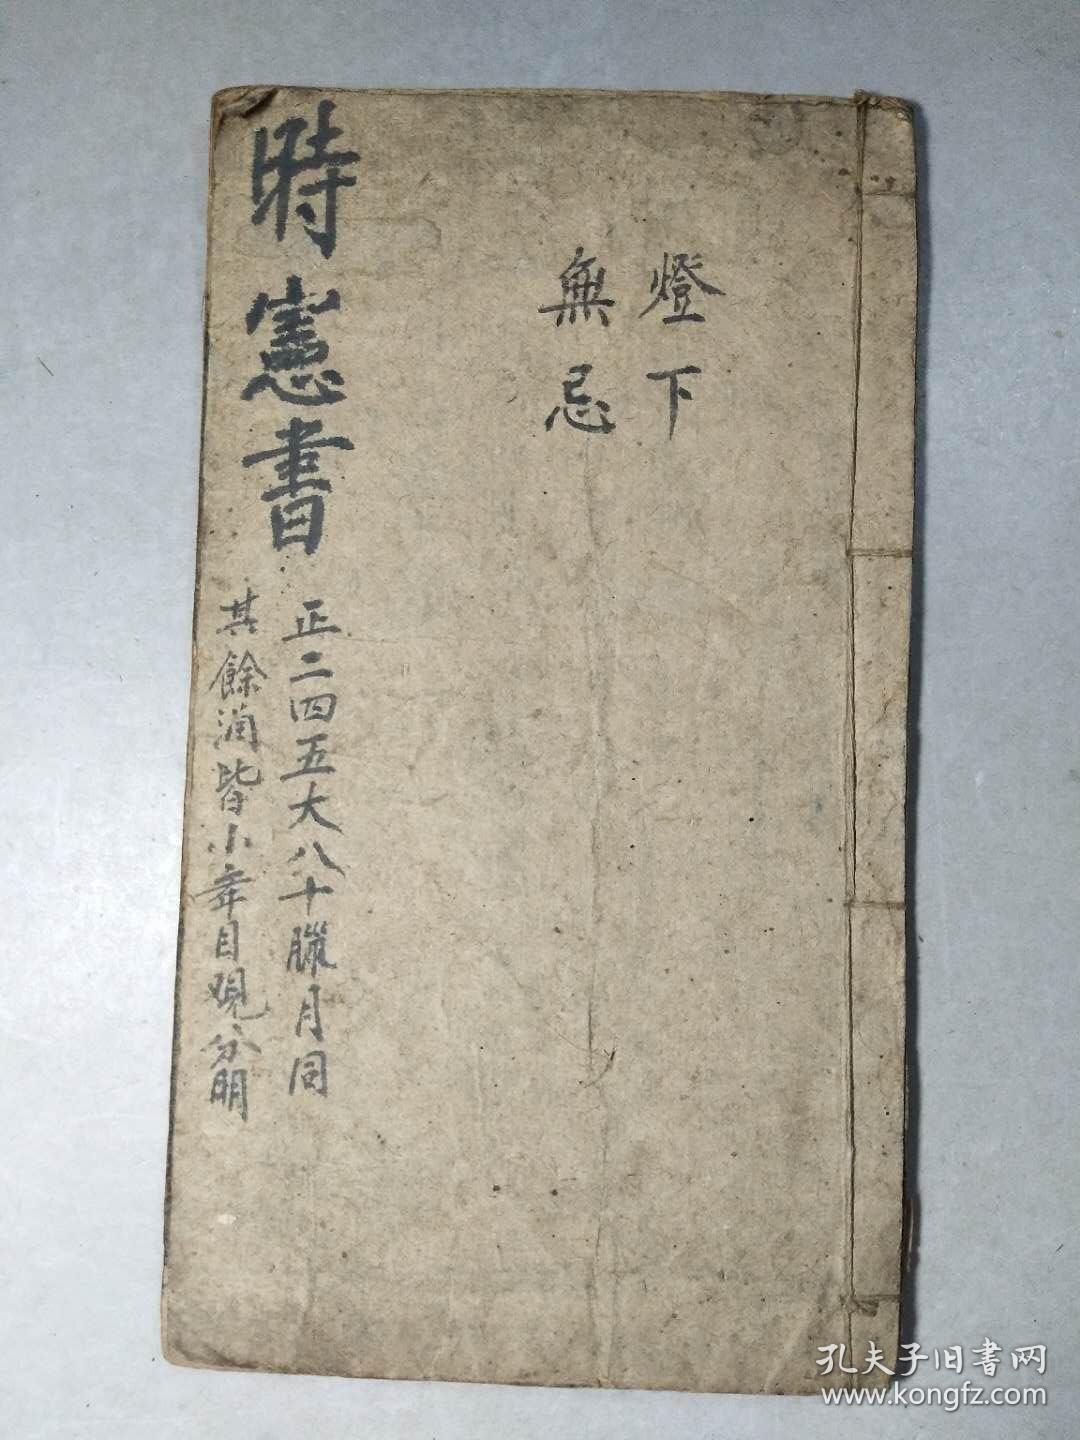 燈下
無忌
時憲書
正二四五大八十臘月同
其餘滴皆小年目觀分明
孔夫子旧書网
www.kongfz.com